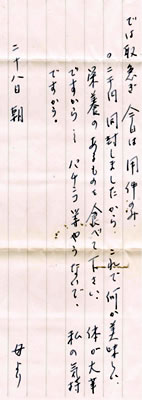 では取急ぎ 今日は用件のみ
。二千円同封しましたから これで何か美味しい
栄養のあるものを食べて下さい 体が大事
ですから… パチンコ業やらないで、 私の気持
ですから。
二十八日 朝
母より